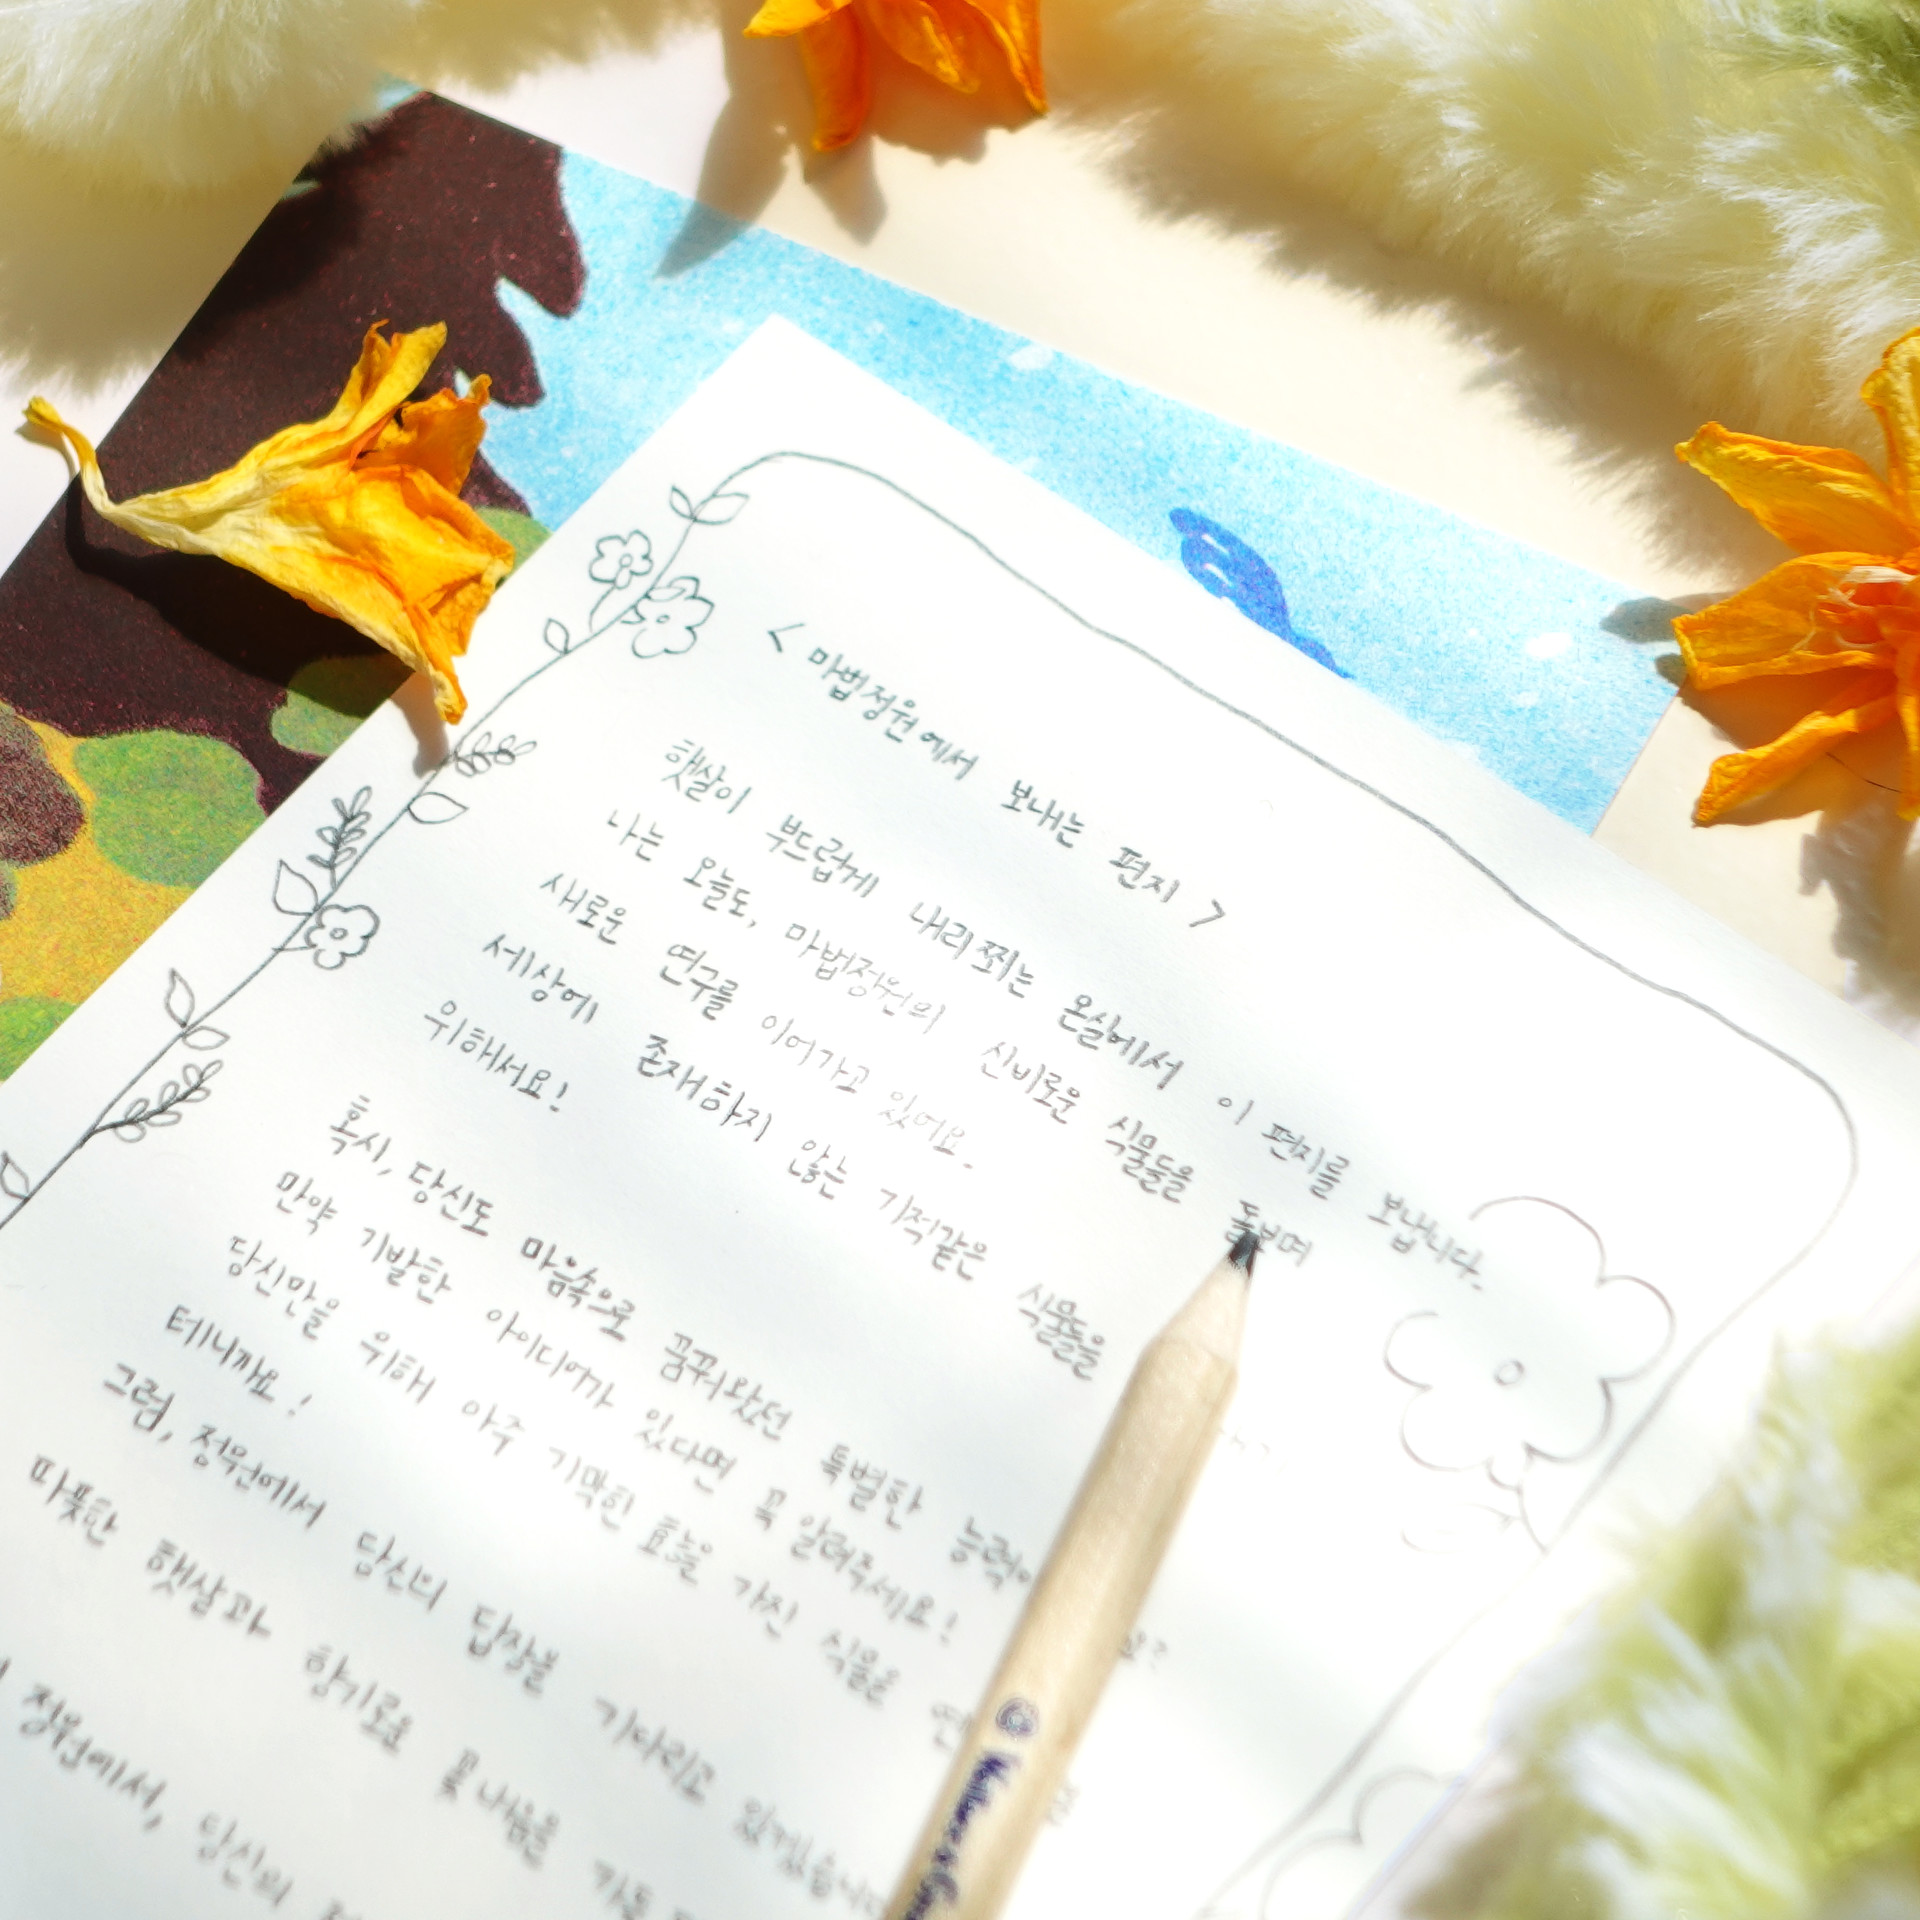 < 마법정원에서 보내는 편지 >
햇살이 부드럽게 내리쬐는 온실에서 이 편지를 보냅니다.
나는 오늘도, 마법정원의 신비로운 식물들을 돌보며
새로운 연구를 이어가고 있어요.
세상에 존재하지 않는 기적같은 식물들을
위해서요!
혹시, 당신도 마음속으로 꿈꿔왔던 특별한
만약 기발한 아이디어가 있다면 꼭 알려주세요!
당신만을 위해 아주 기막힌 효능을 가진 식물을
테니까요!
그럼, 정원에서 당신의 답장을 기다리고
따뜻한 햇살과 향기로운 꽃내음을 가득
정원에서, 당신의